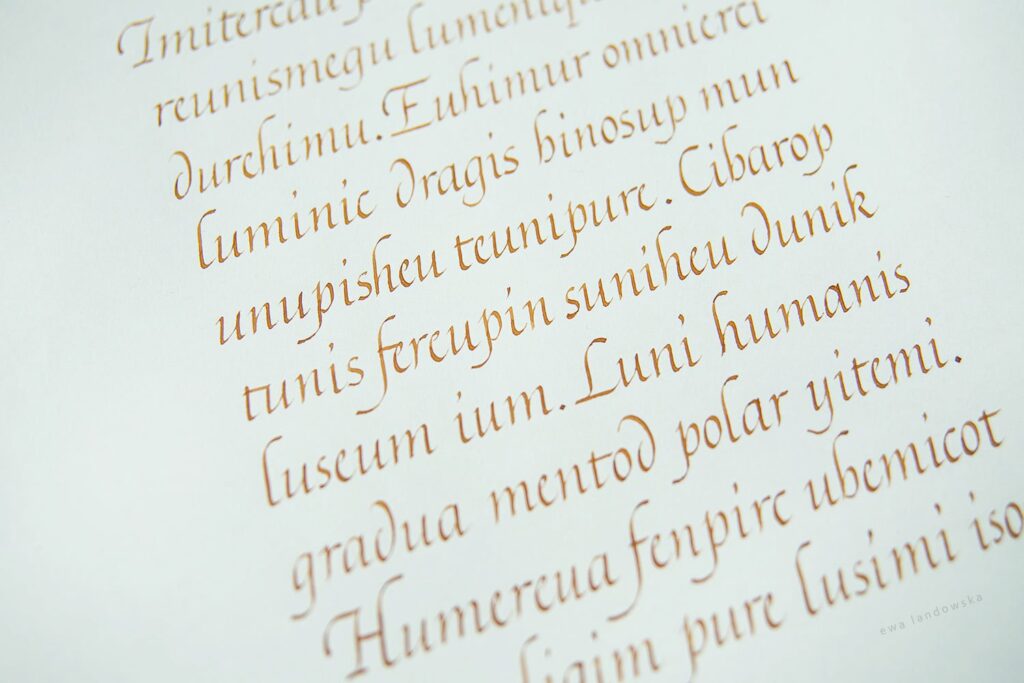 reunismegu
durchimu. Euhimur omnierci
luminic dragis binosup mun
unupisheu teunipure. Cibarop
tunis fereupin suniheu dunik
luseum ium. Luni humanis
gradua mentod polar yitemi.
Humereua fenpire ubemicot
pure lusimi iso
ewa landowska